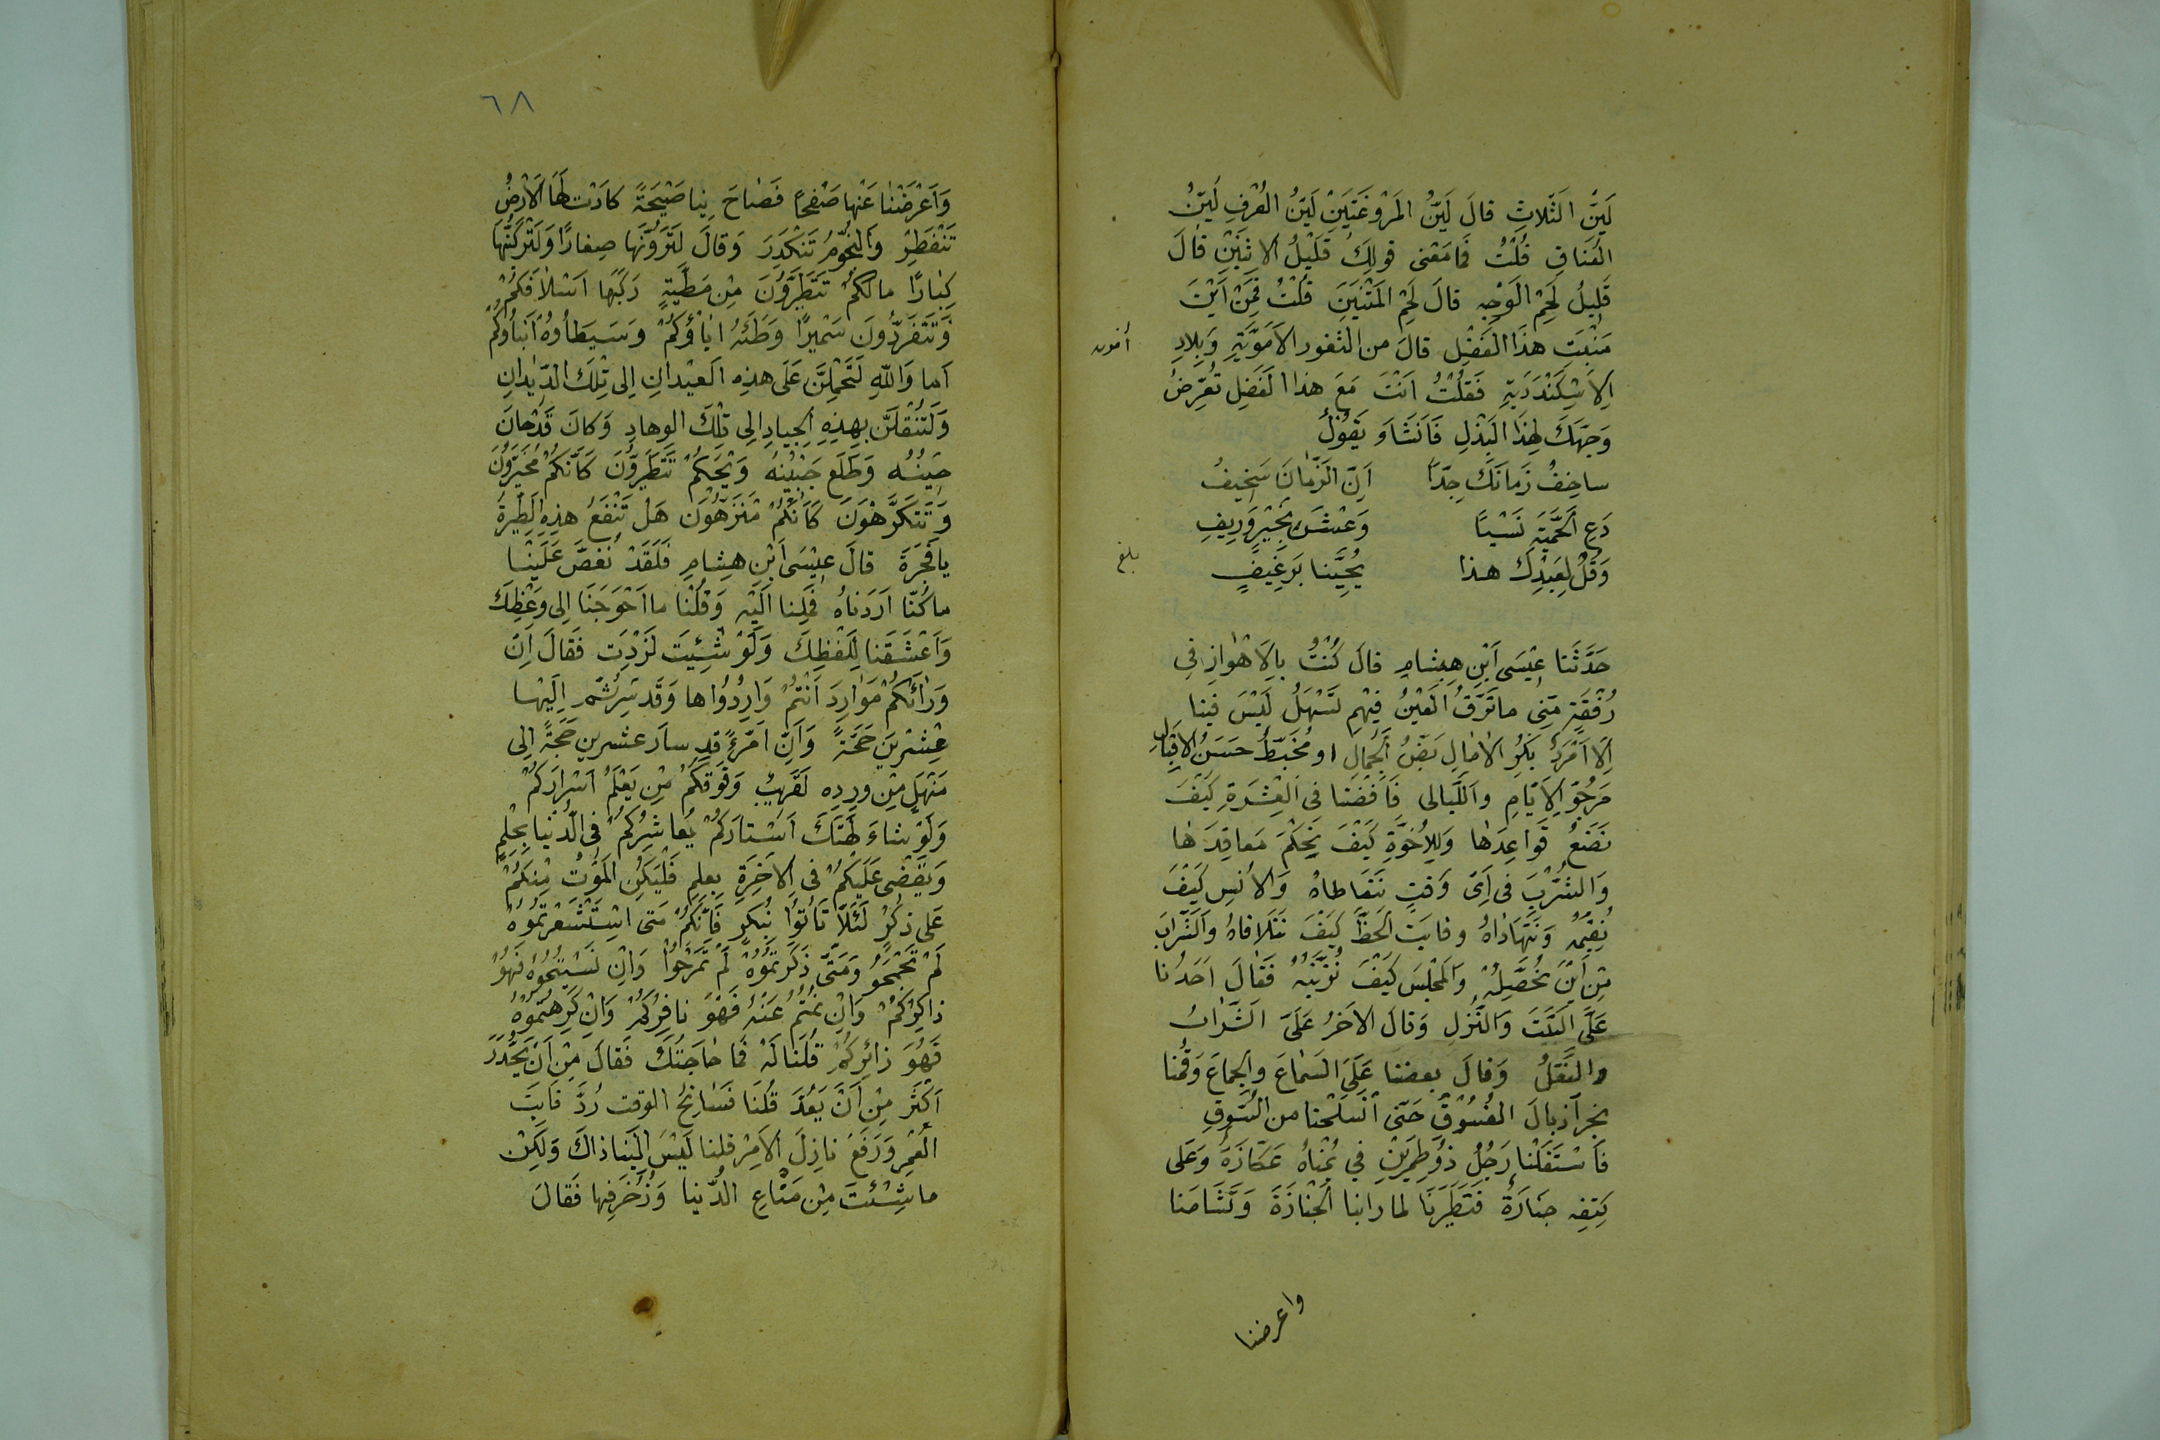 لَيِّنُ الثَّلاثِ قالَ لَيِّنُ المَرْوَغَتَيْنِ لَيِّنُ العُرْفِ لَيِّنُ
العَنانِ قُلْتُ فَما مَعْنى قولِكَ قَليْلُ الاثنَيْنِ قالَ
قَلِيلُ لَحْمِ الوَجْهِ قالَ لَحْمِ المَتْنَيْنِ قُلْتُ فَمِنْ أَيْنَ
مَنْبِتُ هذا الفَضْلِ قالَ من الثغور الاَمَوِيَّةِ وَبِلادِ
أموىه
الاَسْكَنْدَرِيَّةِ فَقُلْتُ اَنْتَ مَعَ هذا الفَضْلِ تُعَرِّضُ
وَجْهَكَ لِهذَا البَذْلِ فَاَنْشَاَ يَقُوْلُ
ساخِفْ زَمانَكَ جِدًّا اَنَّ الزَّمانَ سَخِيفُ
دَعِ الحَمِيَّةَ نَسْيًا وَعِشْ بِخَيْرٍ وَرِيفِ
وَقُلْ لِعَبْدِكَ هذا يُجِيْبُنا بِرَغِيْفٍ
بلغ
حَدَّثَنا عِيْسَى اَبْنِ هِشامٍ قالَ كُنْتُ بِالاَهْوازِ في
رُفْقَةٍ مَتى ما تَرَقَّ العَيْنُ فِيْهِمِ تَسْهَلُ لَيْسَ فينا
اِلّا اَمْرَدُ بِكْرُ الاٰمالِ بَضُّ الجَمالِ او مُخْتَطٌّ حَسَنُ الاقْبالِ
مَرْجُوُّ الاَيّامِ واللَّيالى فَاَفَضْنا فى العِشْرَةِ كَيْفَ
نَضَعُ قَواعِدَها وَللاُخُوَّةِ كَيْفَ نُحْكِمُ مَعاقِدَها
وَالشُّرْبِ فى اَيِّ وَقتٍ نَتَعاطاهُ وَالاُنْسِ كَيْفَ
نُقِيْمُهُ وَنَتَهاداهُ وفايتِ الحَظِّ كَيْفَ نَتَلافاهُ والشَّرابِ
مِنْ اَيْنَ نُحَصِّلُهُ وَالمَجْلِسِ كَيْفَ نُزَيِّنُهُ فَقالَ اَحَدُنا
عَلَيَّ البَيْتَ وَالنُّزلِ وَقالَ الآخَرُ عَلَيَّ الشَّرابُ
والنَّقلُ وَقالَ بعضنا عَلَيَّ السَماعَ والجِماعَ وَقُمْنا
نجر اَذيالَ الفُسُوْقِ حَتّى اَنْسَلَخْنا من السُّوقِ
فَاَسْتَقْبَلْنا رَجُلٌ ذُو طِمْرَيْنِ في يُمْناهُ عَكّازَةٌ وَعَلى
كِتِفِهِ جنازَةٌ فَتَطَيَّرْنا لما راينا الجَنازَةَ وَتَشامَنا
واعرضنا
٦٨
وَاَعْرَضْنا عَنْها صَفْحًا فَصاحَ بِنا صَيْحَةً كادَتْ لَها الاَرْضُ
تَنْفَطِرُ وَالنُّجُومُ تَنْكَدِرُ وَقالَ لَتَرَوُنَّها صِغارًا وَلَتَرْكَبُنَّها
كِبارًا مالَكُمْ تَتَطَيَّرُوْنَ مِنْ مَطِيَّةٍ رَكِبَها اَسْلافُكُمْ
وَتَتَقَزَّزُونَ سَرِيْرًا وَطَئَهُ اباؤُكُمْ وَسَيَطَاُوهُ اَبناؤُكُمْ
اَما وَاللهِ لَتُحْمَلُنَّ عَلَى هذِهِ العَيْدانِ اِلى تِلْكَ الدّيْدانِ
وَلَتُنْقَلُنَّ بِهذِهِ الجِيادِ اِلى تِلْكَ الوِهادِ وَكانَ قَدْحانَ
حَيْنُهُ وَطَلَعَ جَبيْنهُ وَيْحَكُمْ تَتَطَيَّرُوْنَ كَاَنَّكُمْ مُخَيَّرُوْنَ
وَتَتَكَرَّهُوْنَ كَاَنَّكُمْ مُنَزَّهُوْنَ هَلْ تَنْفَعُ هذِهِ الطِّيَرَةُ
يا فَجَرَةَ قالَ عِيْسَى اَبْنِ هِشامٍ فَلَقَدْ نَغَّصَ عَلَيْنا
ما كُنّا اَرَدْناهُ فَمِلْنا اِلَيْهِ وَقُلْنا ما اَحْوَجَنا اِلى وَعْظِكَ
وَاَعْشَقَنا لِلَفْظِكَ وَلَوْ شِئْتَ لَزِدْتَ فَقالَ اِنَّ
وَرائَكُمْ مَوارِدَ اَنْتُمْ وَارِدُوْها وَقَد سِرْتُمْ اِلَيْها
عِشْرِيْنَ حَجَّةً وَاِنَّ اَمْرَءً قد سارَ عشرين حَجَّةً اِلى
مَنْهَلٍ مِنْ وِردِهِ لَقَرِيْبُ وَفَوْقَكُمْ مَنْ يَعْلَمُ اَسْرارَكُمْ
وَلَوْ شاءَ لَهَتَكَ اَسْتارَكُمْ يُعاشِرُكُمْ فى الدُّنْيا بِحِلْمٍ
وَيَقْضى عَلَيْكُمْ فى الاَخِرَةِ بِعِلمٍ فَلْيَكُنِ المَوْتُ مِنْكُمْ
عَلى ذِكْرٍ لَئَلّا تَأْتُوْا بِنُكرٍ فَاِنَّكُمْ مَتى اسْتَشْعَرْتُمُوْهُ
لَمْ تَجْمَحُوْ وَمَتى ذَكَرْتُمُوْهُ لَمْ تَمْرَحُوْا وَاِنْ نَسِيْتُمُوْهُ فَهُوَ
ذاكِرُكُمْ وَاِنْ نِمْتُمْ عَنْهُ فَهُوَ نافِرُكُمْ وَاِنْ كَرِهْتُمُوْهُ
فَهُوَ زائِركُمْ قُلْنا لَهُ فَما حاجَتُكَ فَقالَ مِنْ اَنْ تُحَدَّدَ
اَكْثَر مِنْ اَنْ يُعَدَّ قُلْنا فَسانِحُ الوقت رُدَّ فَايتَ
العُمْرِ وَرَفعَ نازِلَ الاَمْرِ قلنا لَيْسَ اِلَيْنا ذاكَ وَلكِنْ
ما شِئْتَ مِنْ مَتاعِ الدُّنيا وَزُخْرَفِها فَقالَ